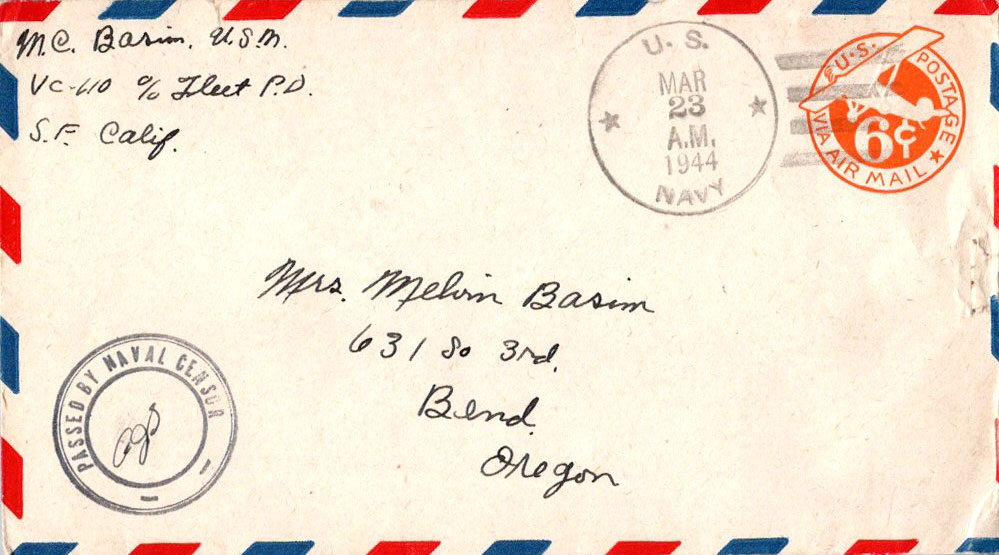 M.C. Basim, U.S.N.
VC-110 c/o Fleet P.O.
S.F. Calif.
U. S.
MAR
23
A.M.
1944
NAVY
U.S. POSTAGE
6¢
VIA AIR MAIL
Mrs. Melvin Basim
631 So 3rd.
Bend.
Oregon
PASSED BY NAVAL CENSOR